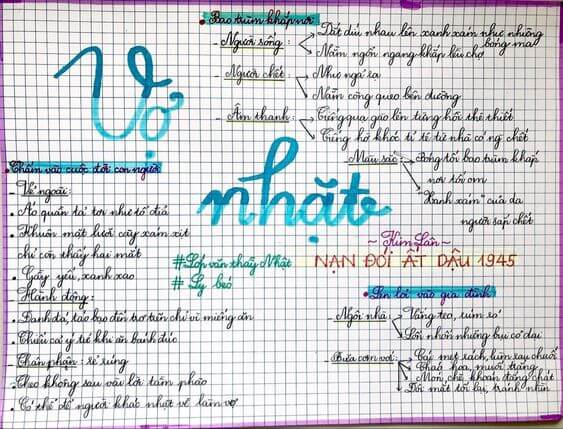 • Bao trùm khắp nơi
- Người sống:
Dắt díu nhau lên xanh xám như những
bóng ma
Nằm ngổn ngang khắp lều chợ
- Người chết:
Như ngả rạ
Nằm cong queo bên đường
- Âm thanh:
Tiếng quạ gào lên từng hồi thê thiết
Tiếng hờ khóc tỉ tê từ nhà có ng chết
- Màu sắc:
Bóng tối bao trùm khắp
nơi tối om
"Xanh xám" của da
người sắp chết
Vợ
nhặt
~ Kim Lân ~
NẠN ĐÓI ẤT DẬU 1945
#Lớp văn thầy Nhật
# Ly béo
• Thấm vào cuộc đời con người
- Vẻ ngoài:
• Áo quần tả tơi như tổ đỉa
• Khuôn mặt lưỡi cày xám xịt
chỉ còn thấy hai mắt
• Gầy yếu, xanh xao
- Hành động:
• Đanh đá, táo bạo đến trơ trẽn chỉ vì miếng ăn
• Thiếu cả ý tứ khi ăn bánh đúc
- Thân phận: rẻ rúng
• Theo không sau vài lời tầm phào
• Có thể để người khác nhặt về làm vợ
• Len lỏi vào gia đình
- Ngôi nhà:
Vắng teo, rúm ró
Lổn nhổn những bụi cỏ dại
- Bữa cơm
Cái mẹt rách, lùm rau chuối
Cháo hoa, muối trắng
Món chè khoán đắng chát
Đôi mắt tối lại, tránh nhìn